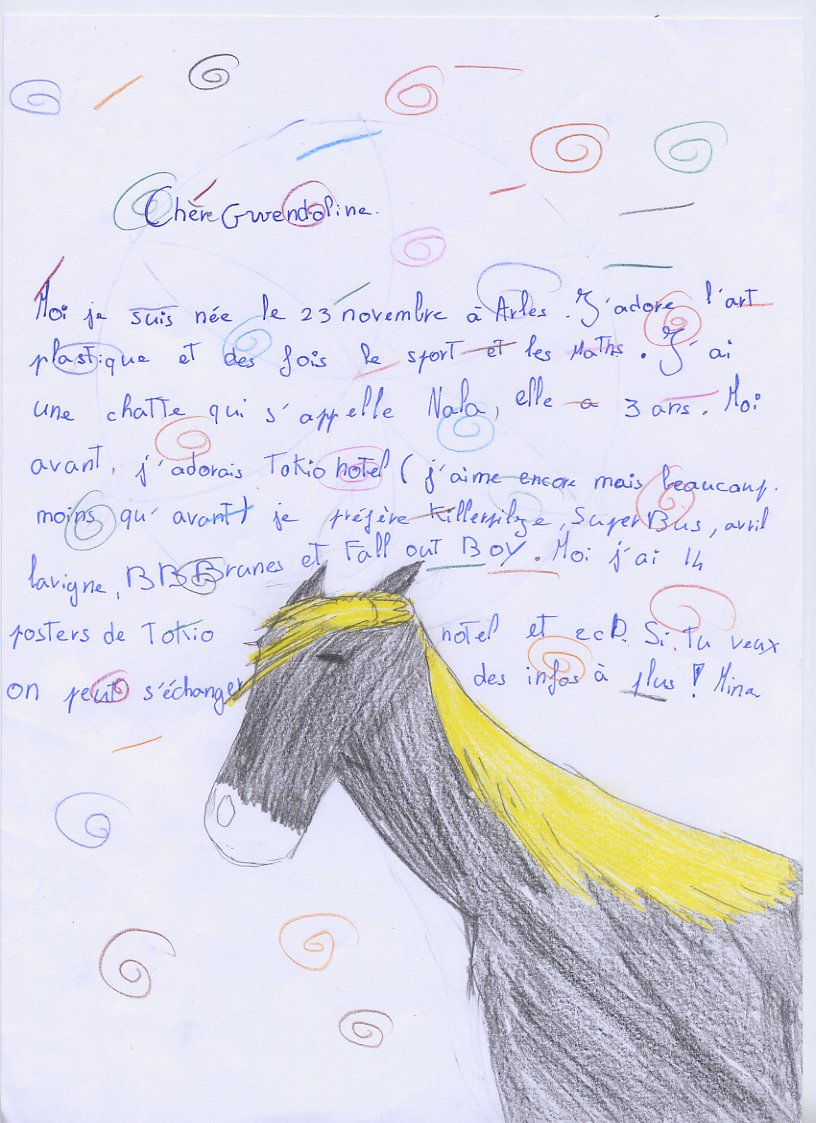 Chère Gwendoline.
Moi je suis née le 23 novembre à Arles. J'adore l'art
plastique et des fois le sport et les Maths. J'ai
une chatte qui s'appelle Nala, elle a 3 ans. Moi
avant, j'adorais Tokio hotel (j'aime encore mais beaucoup.
moins qu'avant) je préfère Killerpilze, Super Bus, avril
lavigne, BB Brunes et Fall out Boy. Moi j'ai 14
posters de Tokio hotel et ecD. Si Tu veux
on peut s'échanger des infos à plus ! Mina